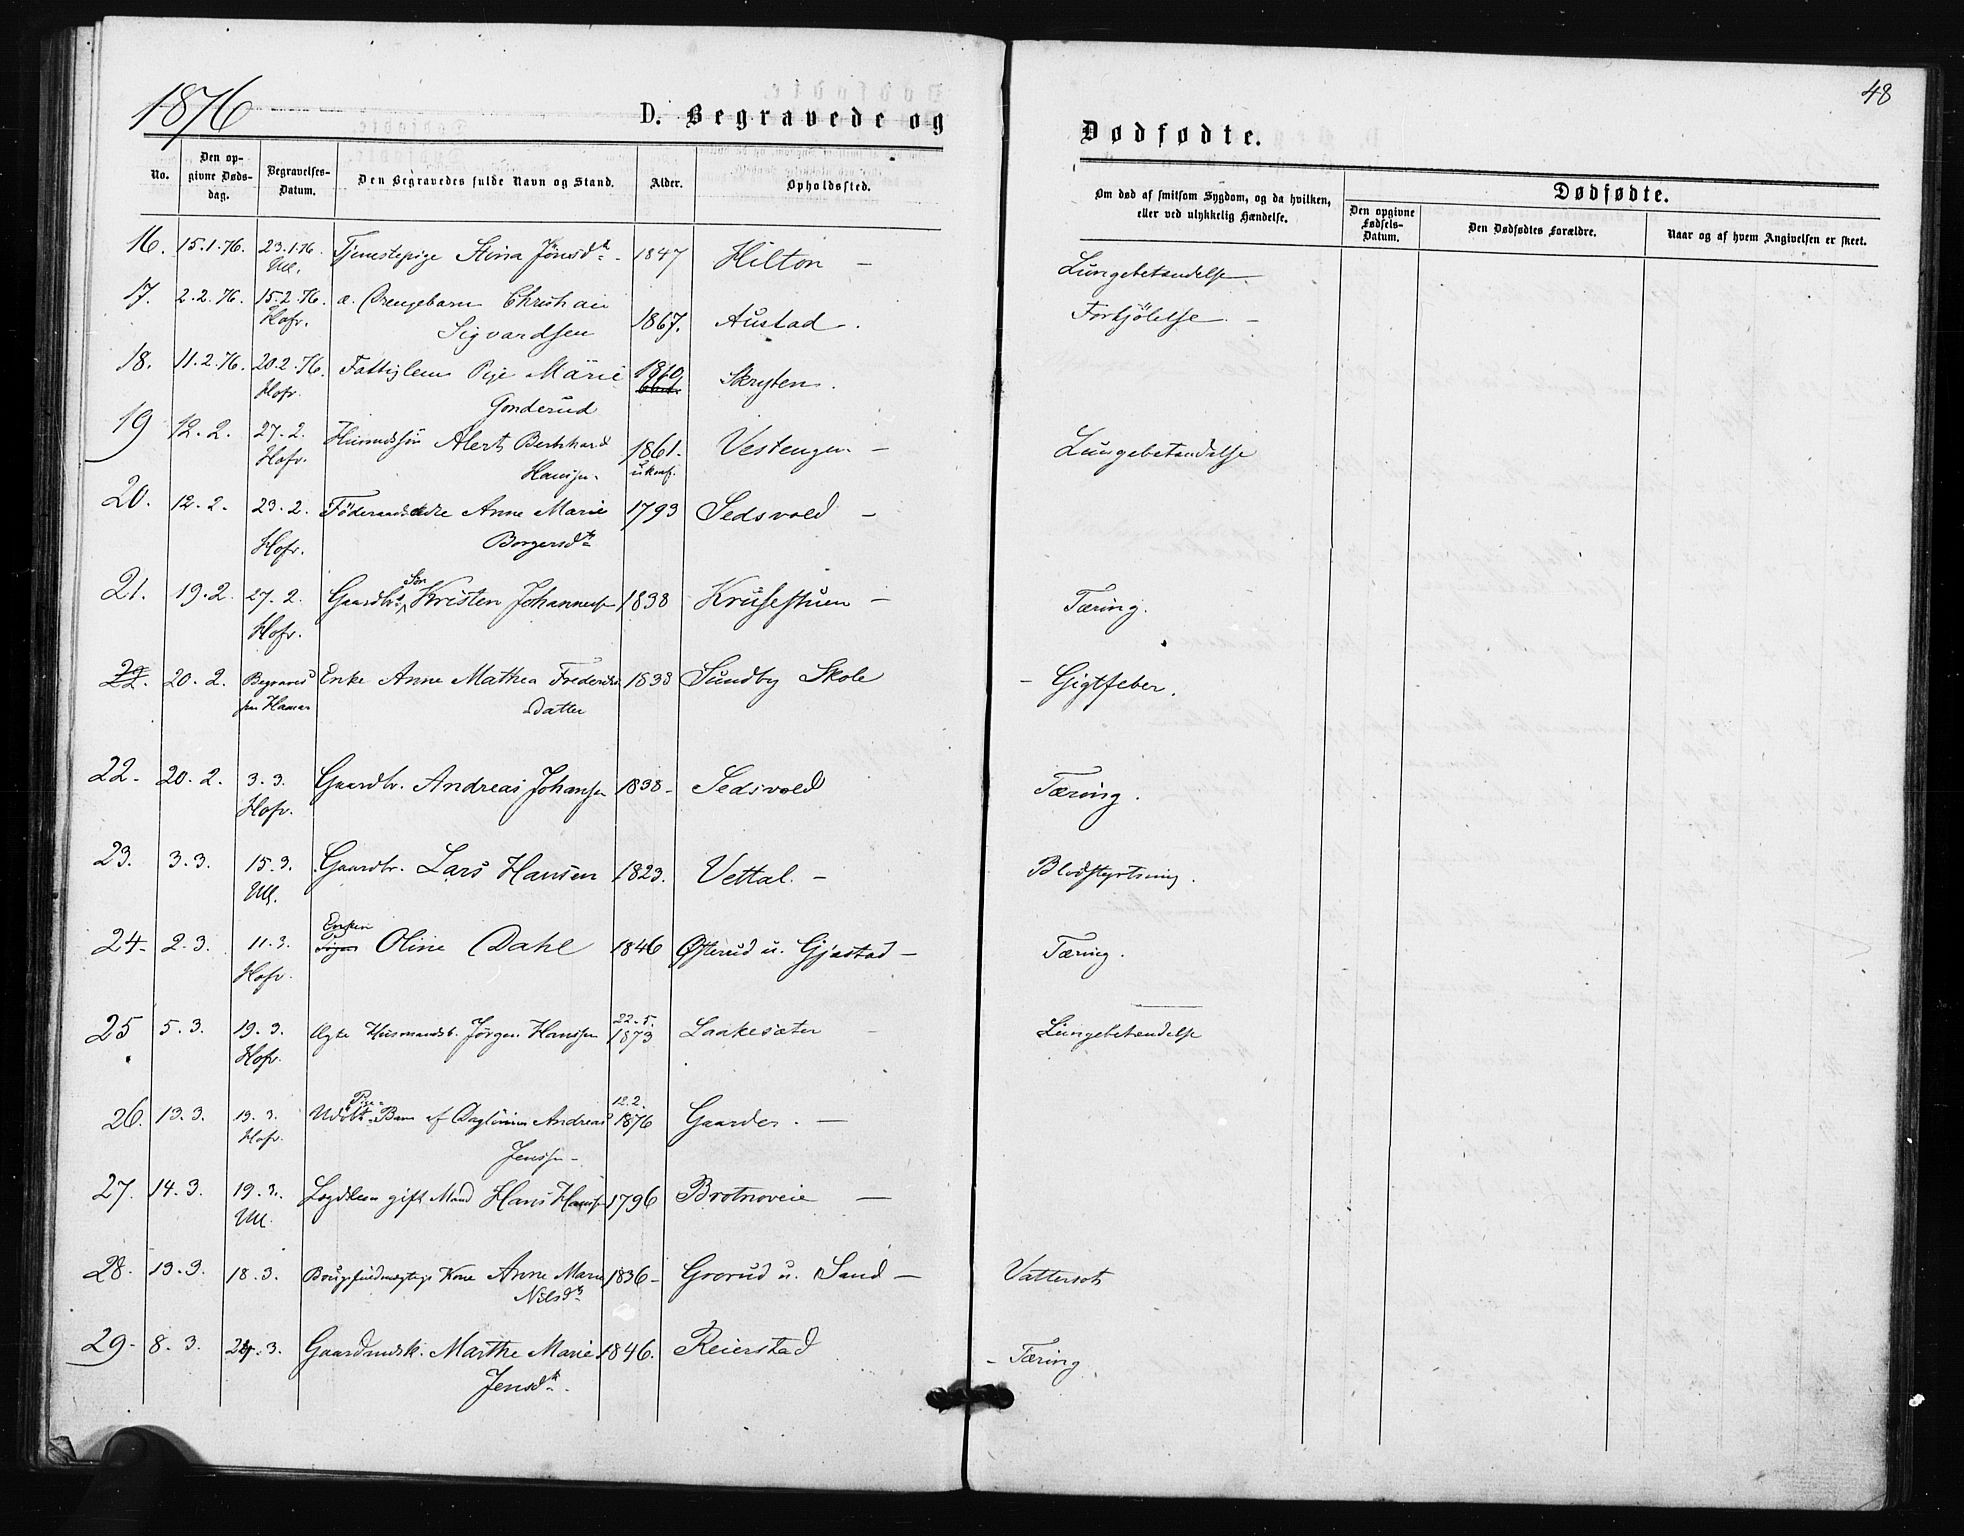 1876
48
D. Begravede og
Dødfødte.
No.
Den op-
givne Døds-
dag.
Begravelses-
Datum.
Den Begravedes fulde Navn og Stand.
Alder.
Opholdssted.
Om død af smitsom Sygdom, og da hvilken,
eller ved ulykkelig Hændelse.
Dødfødte.
Den opgivne
Fødsels-
Datum.
Den Dødfødtes Forældre.
Naar og af hvem Angivelsen er skeet.
16. 15.1.76. 23.1.76. Tjenestepige Stina Jönsdtr 1847 Hilton – Lungebetændelse
Ull.
17. 2.2.76. 15.2.76. æ. Drengebarn Christian
Hofv. Sigvardsen 1867. Austad. Forkjölelse. –
18. 11.2.76. 20.2.76. Fattiglem Pige Marie 1810 Skryten.
Hofv. Gonderud
19 12.2. 27.2. Alert Bernhard 1861. Vestengen – Lungebetændelse
Hofv. Hansen ukonf.
20. 12.2. 23.2. Föderaadsenke Anne Marie 1793 Sedsvold –
Hofv. Borgersdtr
21. 19.2. 27.2. Gaardbrs Søn Kristen Johannessen 1838 Krusestuen – Tæring.
Hofv.
22. 20.2. Begraves Enke Anne Mathea Frederiks 1833 Sundby Skole – Gigtfeber.
paa Hamar datter
22. 20.2. 3.3. Gaardbr. Andreas Johansen 1838 – Sedsvold Tæring.
Hofv.
23. 3.3. 15.3. Gaardbr. Lars Hansen 1823. Vettal. – Blodstyrtning.
Ull.
24. 2.3. 11.3. Enken Oline Dahl 1846 Østerud u. Gjestad – Tæring.
Hofv.
25 5.3. 19.3. Ægte Husmandsb. Jørgen Hanssen 22.5. 1873 Laakesæter – Lungebetændelse
Hofv.
26. 13.3. 19.3. Udöbt Pige-Barn af Daglönner Andreas 12.2. 1876 Gaarder. –
Hofv. Jenssen –
27. 14.3. 19.3. Lægdslem gift Mand Hans Hanssen 1796 Brotnoveie –
Ull.
28. 13.3. 18.3. Kone Anne Marie 1836 – Grorud u. Sand – Vattersot
Nilsdtr
29 – 8.3. 24.3. Gaardmdsk. Marthe Marie 1846. Reierstad – Tæring
Jensdtr.